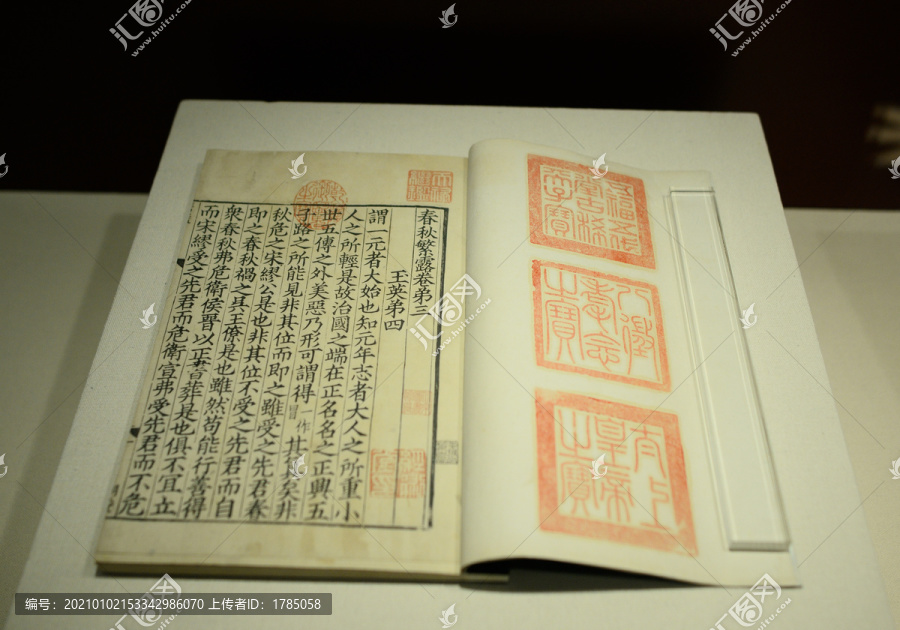 春秋繁露卷第三
王英第四
謂一元者大始也知元年志者大人之所重小
人之所輕是故治國之端在正名名之正興五
世五傳之外美惡乃形可謂得一作其真矣非
子路之所能見非其位而即之雖受之先君春
秋危之宋繆公是也非其位不受之先君而自
即之春秋禍之吳王僚是也雖然苟能行善得
衆春秋弗危衛侯晉以正書葬是也俱不宜立
而宋繆受之先君而危衛宣弗受先君而不危
五福五代堂古稀天子寶
八徵耄念之寶
太上皇帝之寶
汇图网
www.huitu.com
编号：20210102153342986070 上传者ID：1785058